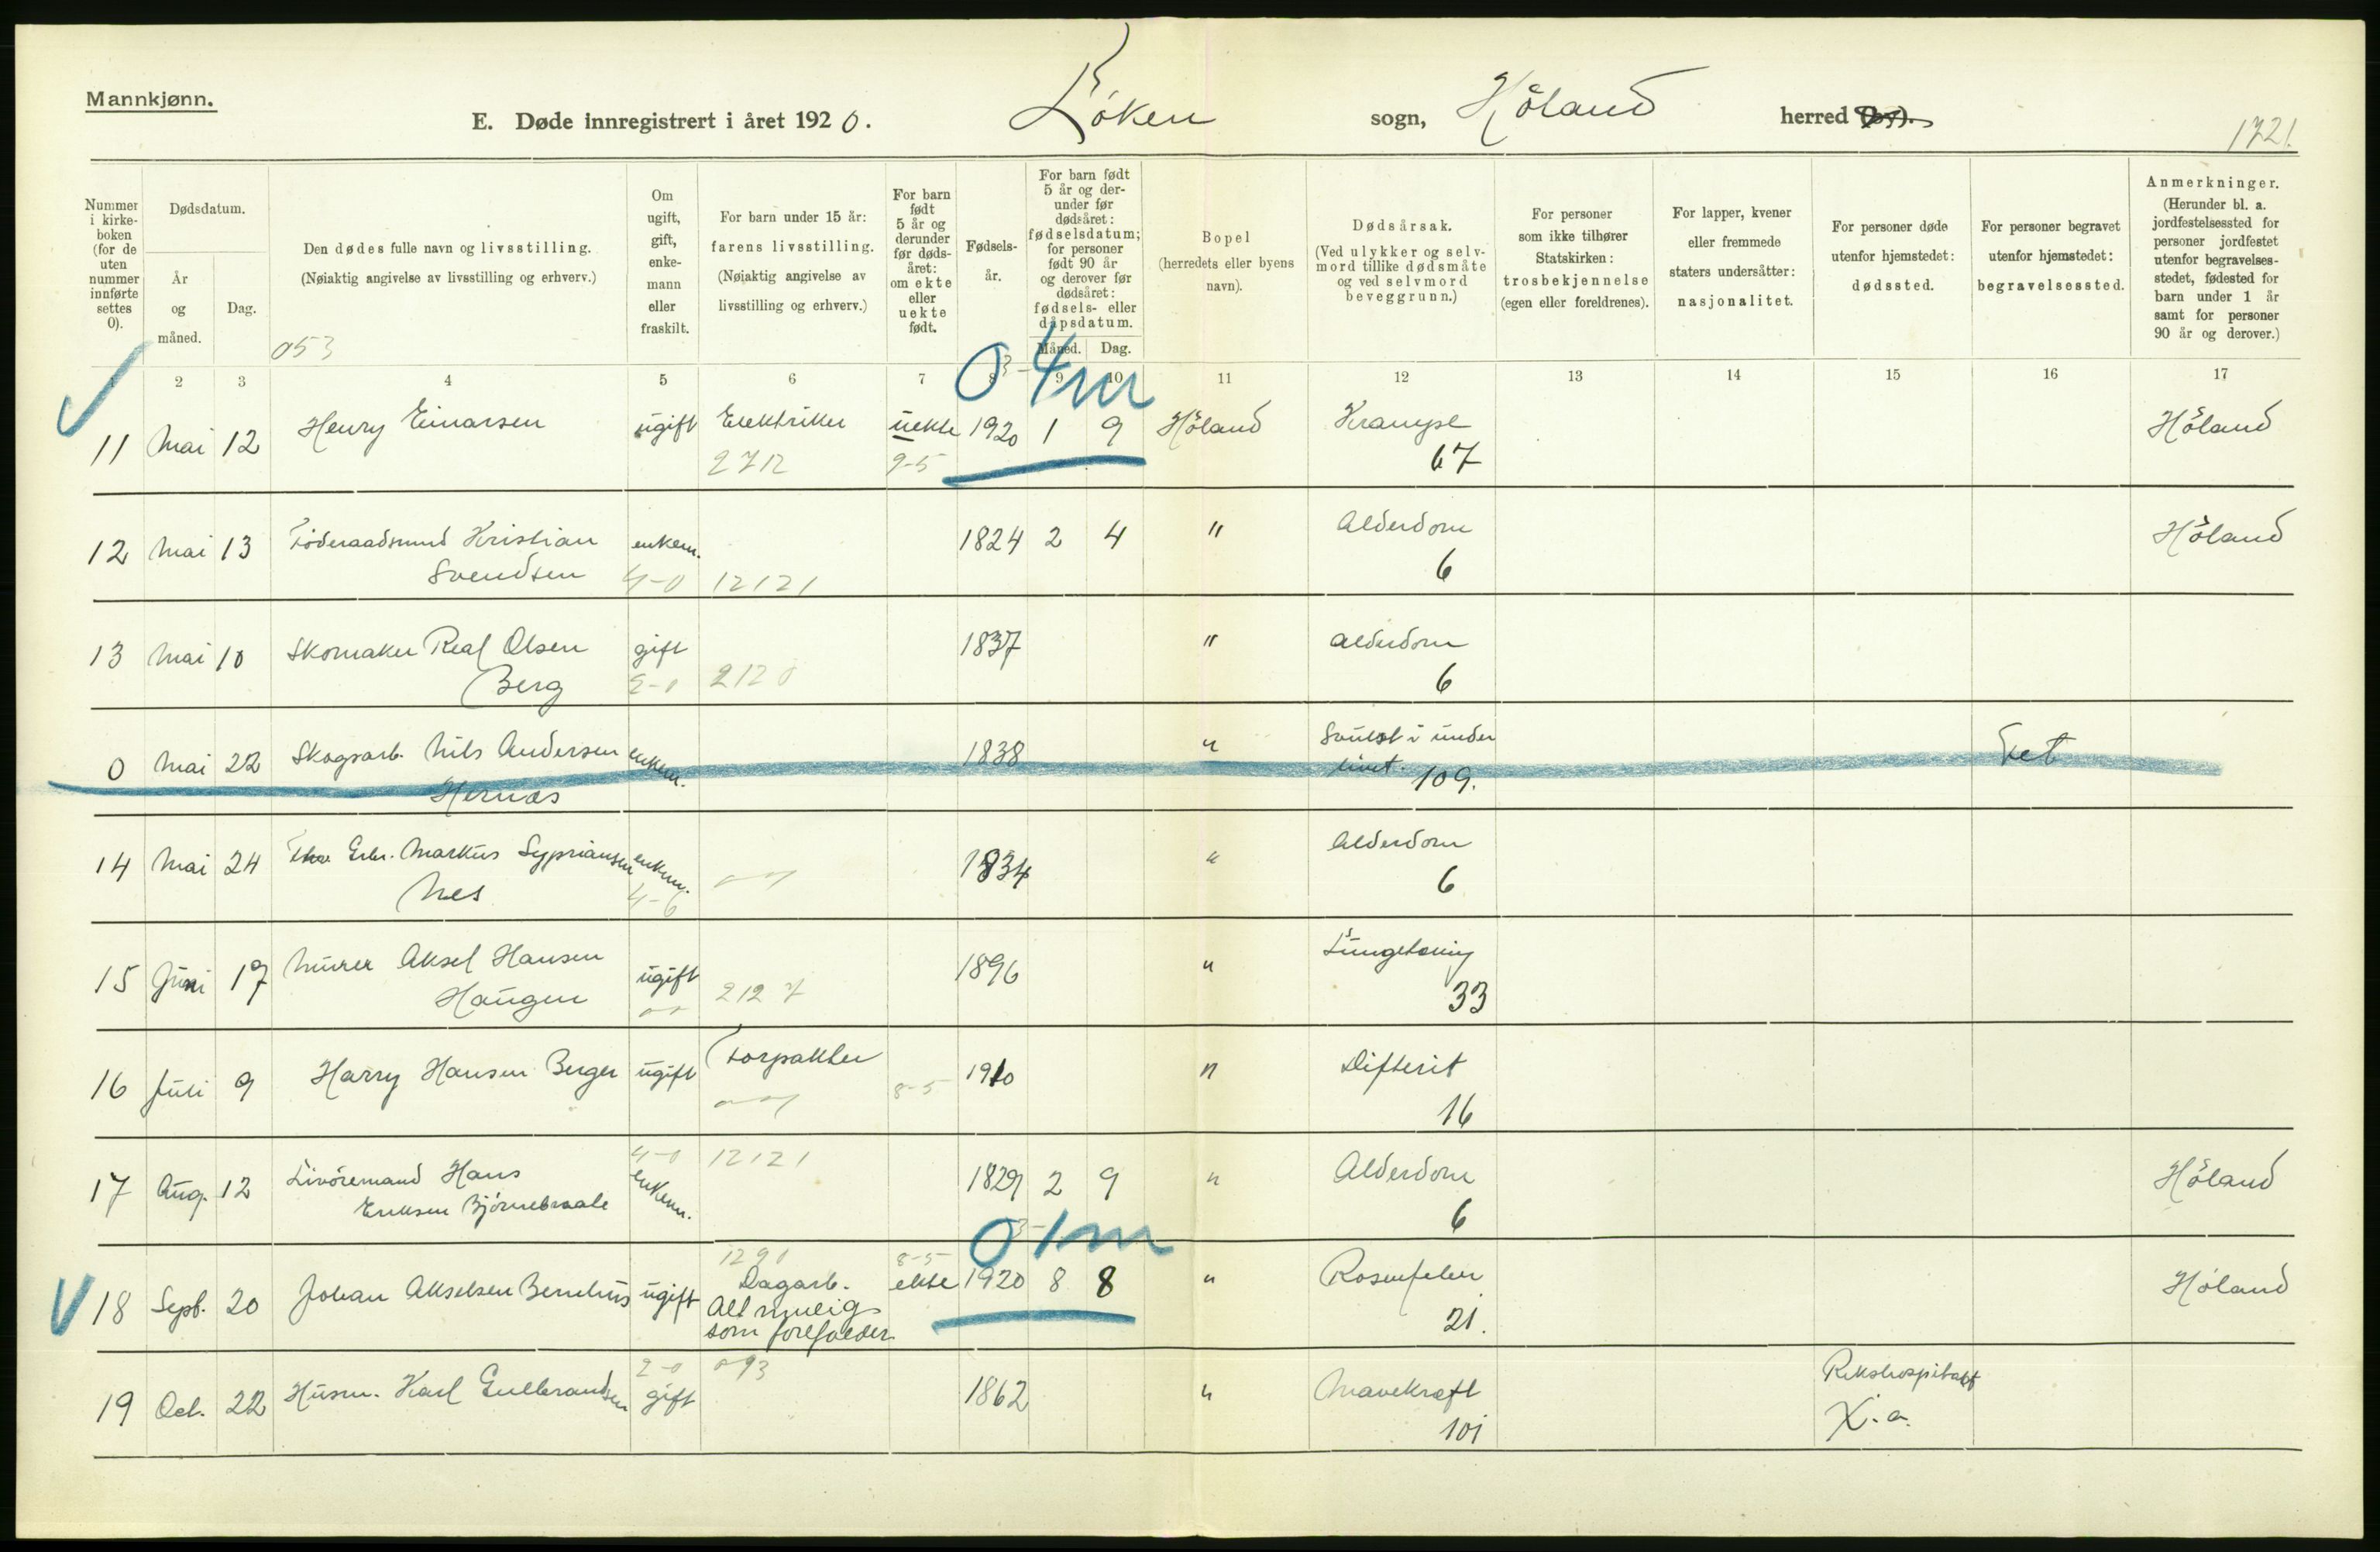 Mannkjønn.
E. Døde innregistrert i året 1920.
Löken sogn, Höland herred (by).
1721.
Nummer i kirke- boken (for de uten nummer innførte settes 0).
Dødsdatum.
År og måned.
Dag.
Den dødes fulle navn og livsstilling.
(Nøiaktig angivelse av livsstilling og erhverv.)
053
Om ugift, gift, enke- mann eller fraskilt.
For barn under 15 år: farens livsstilling.
(Nøiaktig angivelse av livsstilling og erhverv.)
For barn født 5 år og derunder før døds- året: om ekte eller uekte født.
Fødsels- år.
For barn født 5 år og der- under før dødsåret: fødselsdatum; for personer født 90 år og derover før dødsåret: fødsels- eller dåpsdatum.
Måned. Dag.
Bopel (herredets eller byens navn).
Dødsårsak.
(Ved ulykker og selv- mord tillike dødsmåte og ved selvmord beveggrunn.)
For personer som ikke tilhører Statskirken: trosbekjennelse (egen eller foreldrenes).
For lapper, kvener eller fremmede staters undersåtter: nasjonalitet.
For personer døde utenfor hjemstedet: dødssted.
For personer begravet utenfor hjemstedet: begravelsessted.
Anmerkninger.
(Herunder bl. a. jordfestelsessted for personer jordfestet utenfor begravelses- stedet, fødested for barn under 1 år samt for personer 90 år og derover.)
2 3 4 5 6 7 8 9 10 11 12 13 14 15 16 17
0 4m
11 Mai 12 Henry Einarsen ugift Elektriker uekte 1920 1 9 Höland Krampe Höland
2712 9-5 67
12 Mai 13 Föderaadsmand Kristian enkem. 1824 2 4 " Alderdom Höland
Svendsen 4-0 12121 6
13 Mai 10 Skomaker Real Olsen gift 1837 " Alderdom
Berg 2-0 2120 6
0 Mai 22 Skogsarb. Nils Andersen enkem. 1838 " Svulst i under Fet
Hernæs livet. 109.
14 Mai 24 Gbr. Markus Sypriansen enkem. 1834 " Alderdom
Nes 4-6 6
15 Juni 17 Murer Aksel Hansen ugift 1896 " Lungetæring
Haugen 2127 33
16 Juli 9 Harry Hansen Berger ugift Forpakter 1910 " Difterit
8-5 16
4-0 12121
17 Aug. 12 Livöremand Hans enkem. 1829 2 9 " Alderdom Höland
Eriksen Björnebraate 6
0 1m
1290 8-5
18 Sept. 20 Johan Akselsen Bernhus ugift Dagarb. ekte 1920 8 8 " Rosenfeber Höland
Alt mulig
som forefalder 21.
2-0 093
19 Oct. 22 Husm. Karl Gulbrandsen gift 1862 " Mavekræft Rikshospitalet
101 X.a.